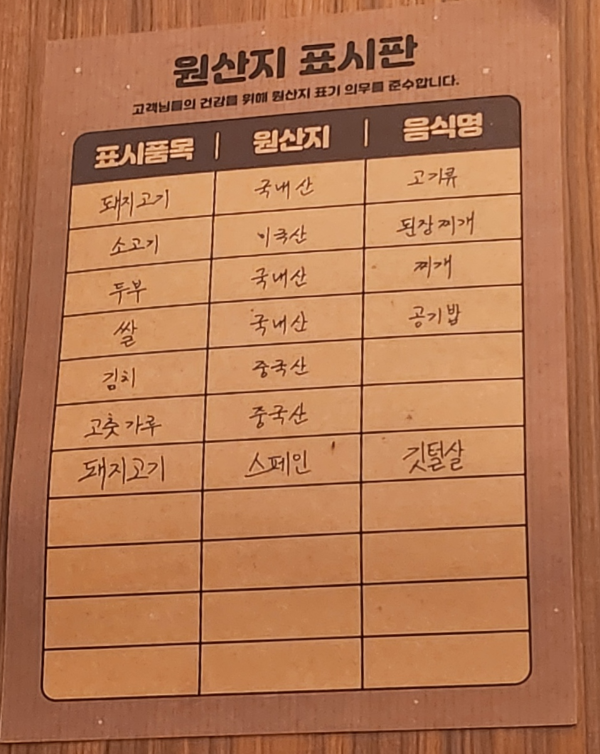 원산지 표시판
고객님들의 건강을 위해 원산지 표기 의무를 준수합니다.
표시품목 | 원산지 | 음식명
돼지고기 국내산 고기류
소고기 미국산 된장찌개
두부 국내산 찌개
쌀 국내산 공기밥
김치 중국산
고춧가루 중국산
돼지고기 스페인 깃털살